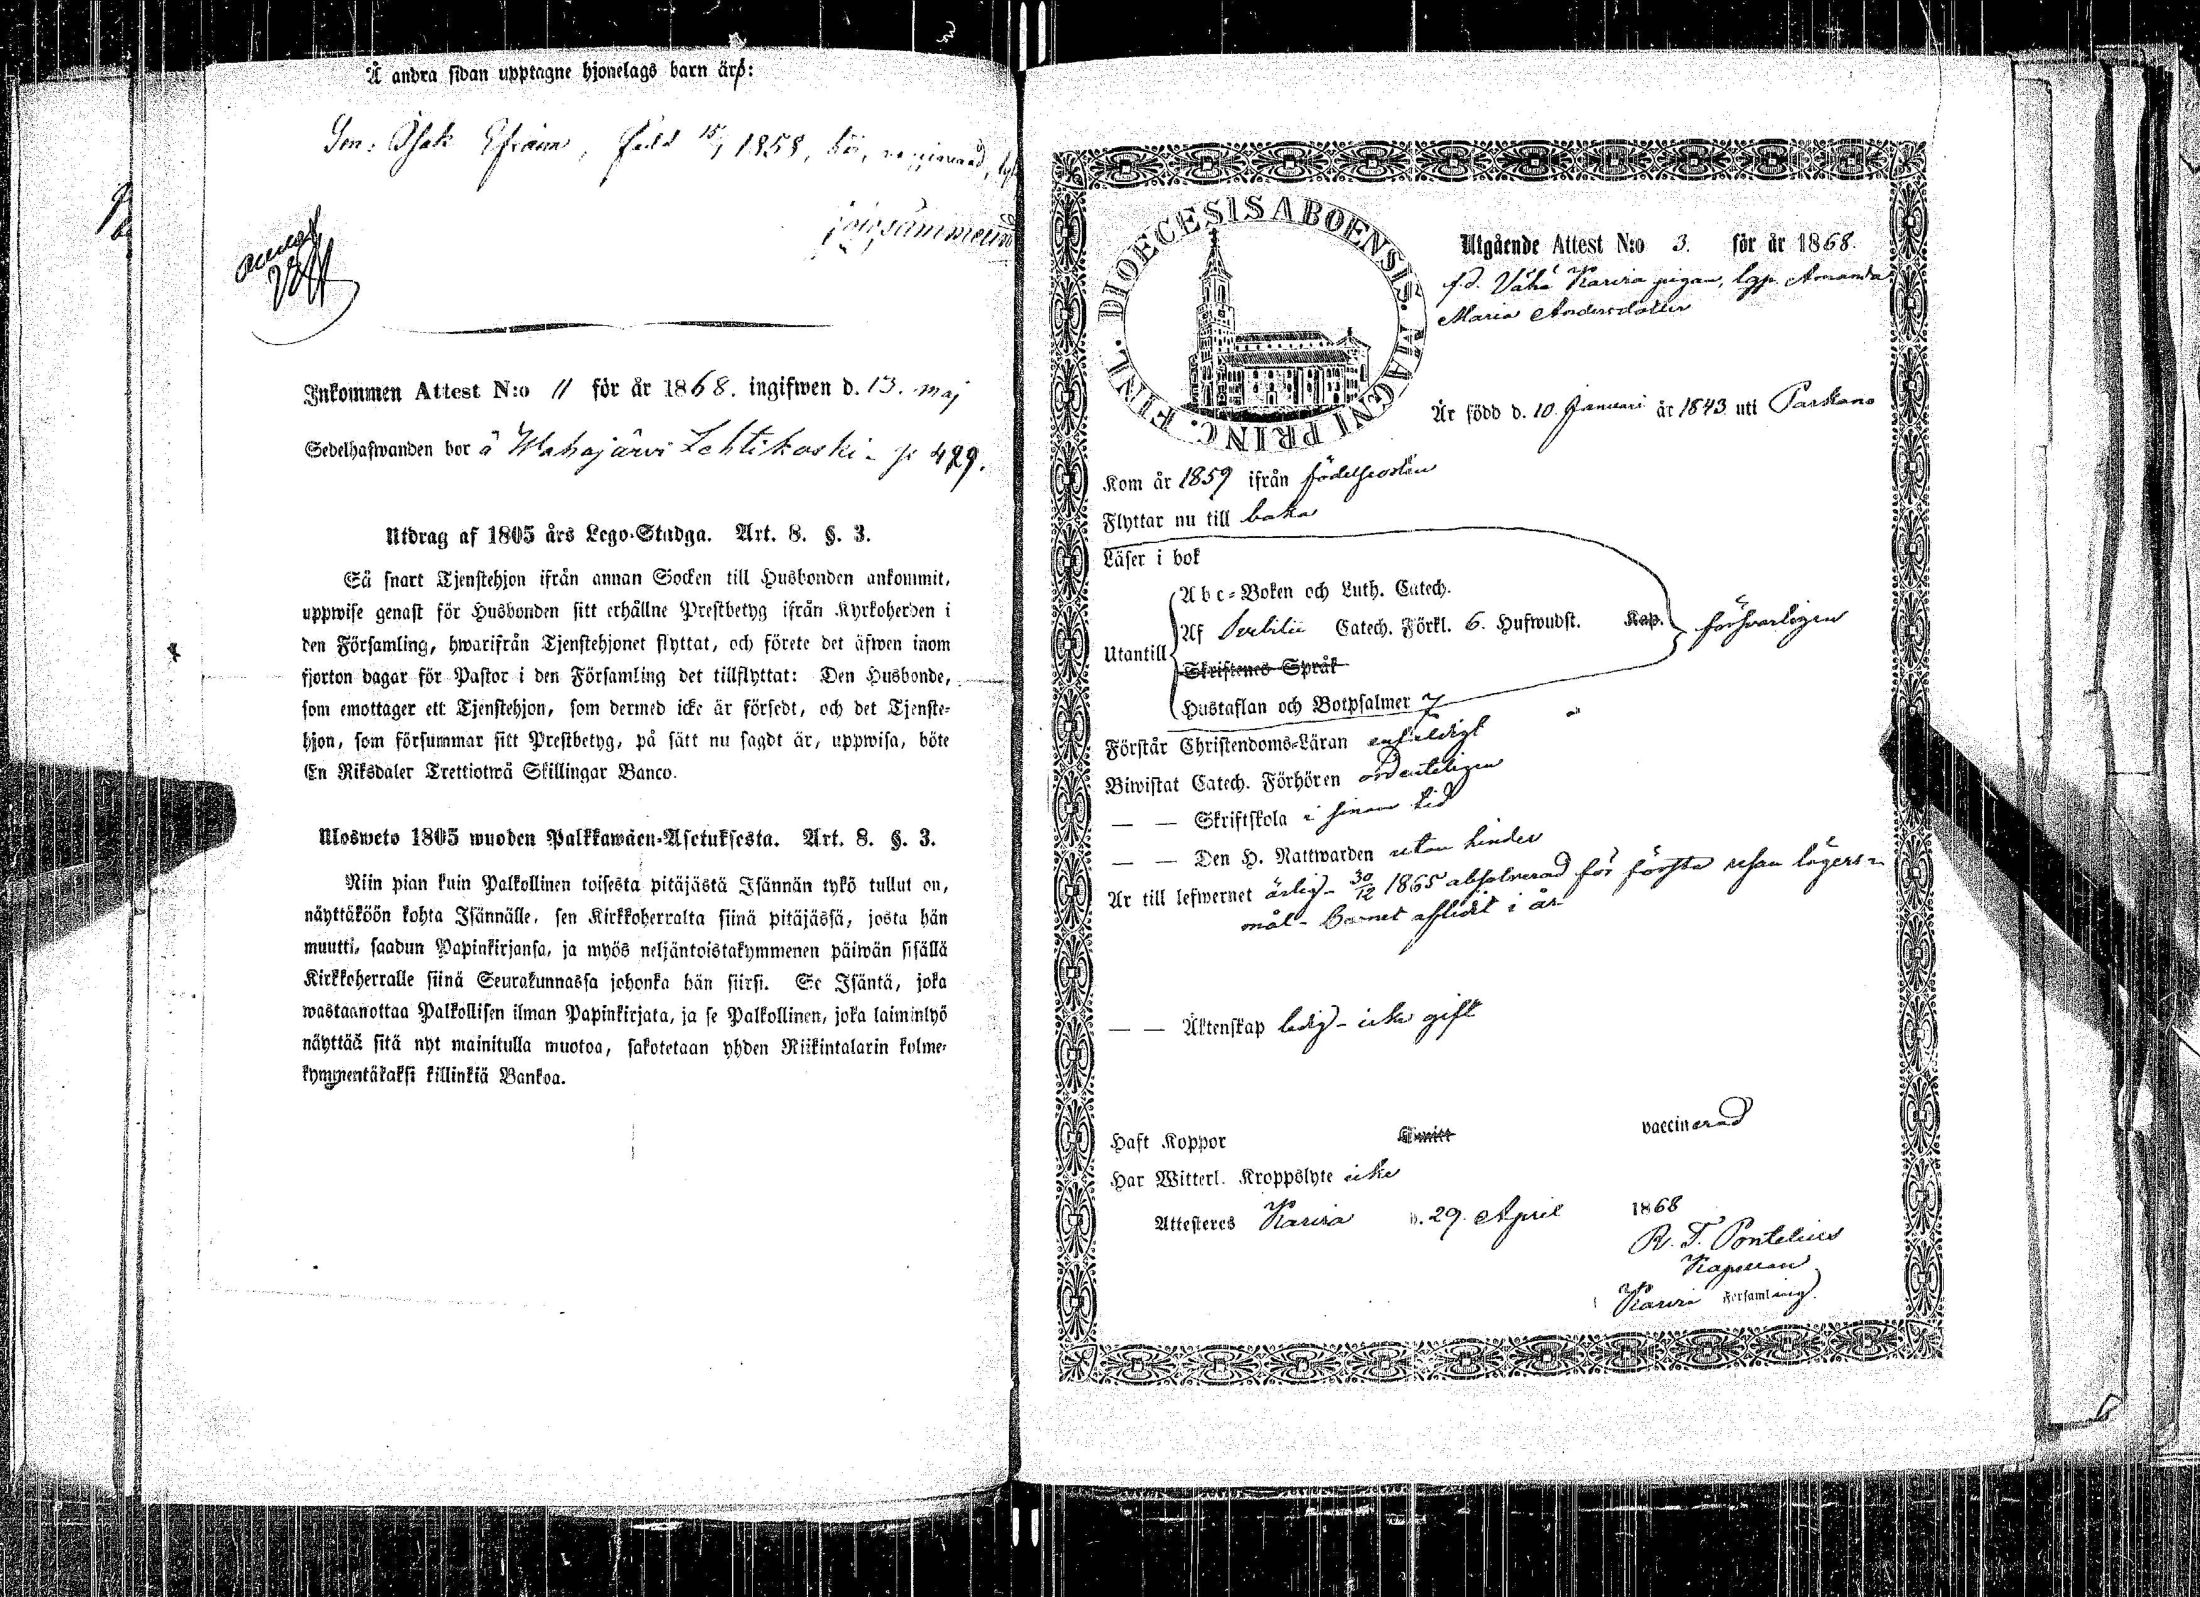 Å andra sidan upptagne hjonelags barn äro:
Son: Isak Efraim, född 15/1 1858,
Inkommen Attest N:o 11 för år 1868. ingifwen d. 13. maj
Sedelhafwanden bor å Wahojärvi Lehtikoski - p: 429.
Utdrag af 1805 års Lego-Stadga. Art. 8. §. 3.
Så snart Tjenstehjon ifrån annan Socken till Husbonden ankommit,
uppwise genast för Husbonden sitt erhållne Prestbetyg ifrån Kyrkoherden i
den Församling, hwarifrån Tjenstehjonet flyttat, och förete det äfwen inom
fjorton dagar för Pastor i den Församling det tillflyttat: Den Husbonde,
som emottager ett Tjenstehjon, som dermed icke är försedt, och det Tjenste-
hjon, som försummar sitt Prestbetyg, på sätt nu sagdt är, uppwisa, böte
En Riksdaler Trettiotwå Skillingar Banco.
Ulosweto 1805 wuoden Palkkawäen-Asetuksesta. Art. 8. §. 3.
Niin pian kuin Palkollinen toisesta pitäjästä Isännän tykö tullut on,
näyttäköön kohta Isännälle, sen Kirkkoherralta siinä pitäjässä, josta hän
muutti, saadun Papinkirjansa, ja myös neljäntoistakymmenen päiwän sisällä
Kirkkoherralle siinä Seurakunnassa johonka hän siirsi. Se Isäntä, joka
wastaanottaa Palkollisen ilman Papinkirjata, ja se Palkollinen, joka laiminlyö
näyttää sitä nyt mainitulla muotoa, sakotetaan yhden Riikintalarin kolme-
kymmentäkaksi killinkiä Bankoa.
DIOECESIS ABOENSIS. MAGNI PRINC. FINL.
Utgående Attest N:o 3. för år 1868.
f.d. Vähä Karvia pigan, lgp. Amanda
Maria Andersdotter
Är född d. 10 Januari år 1843 uti Parkano
Kom år 1859 ifrån födelseorten
Flyttar nu till baka
Läser i bok
Abc-Boken och Luth. Catech.
Utantill Af Svebilii Catech. Förkl. 6. Hufwudst. Kap. försvarligen
Skriftenes Språk
Hustaflan och Botpsalmer 7
Förstår Christendoms-Läran enfaldigt
Biwistat Catech. Förhören ordenteligen
— — Skriftskola i sinom tid
— — Den H. Nattwarden utan hinder
Är till lefwernet ärlig - 30/12 1865 absolverad för första resan lägers-
mål - Barnet aflidit i år
— — Äktenskap ledig - icke gift
Haft Koppor vaccinerad
Har Witterl. Kroppslyte icke
Attesteres Karvia d. 29. April 1868
R. F. Pontelius
Kapellan
Karvia Församling.